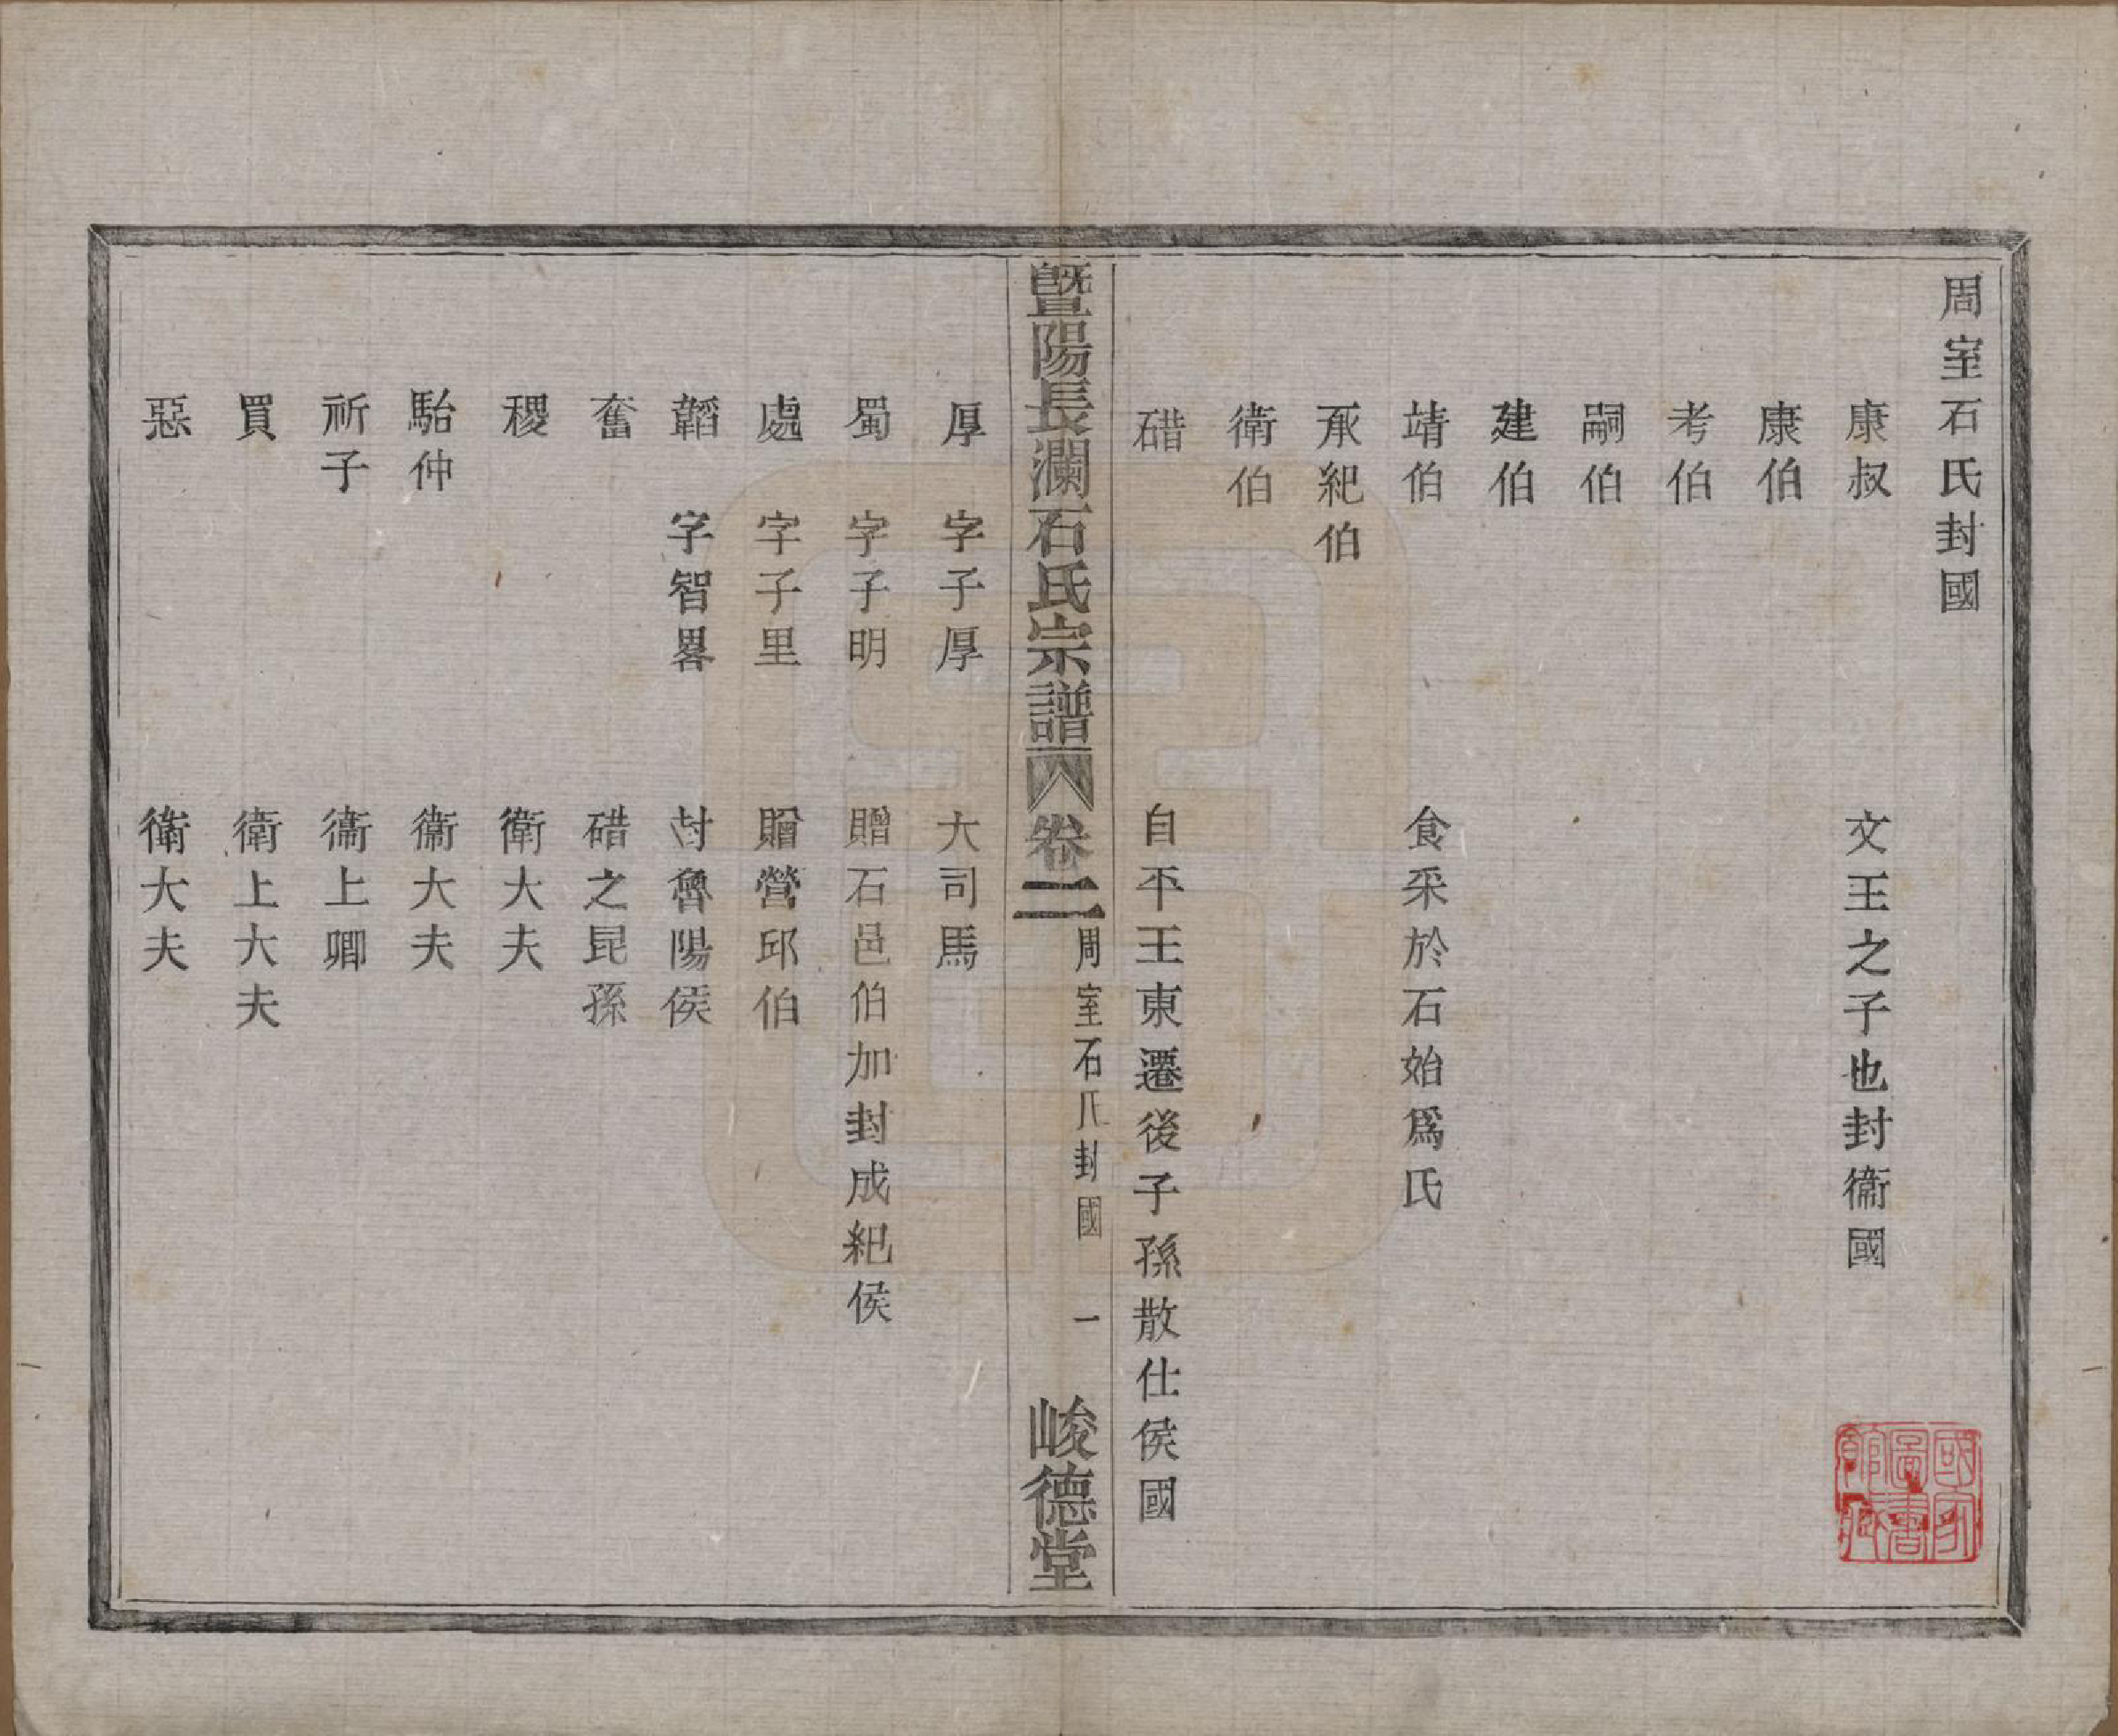 周室石氏封國
康叔 文王之子也封衞國
康伯
考伯
嗣伯
建伯
靖伯 食采於石始爲氏
承紀伯
衛伯
碏 自平王東遷後子孫散仕侯國
暨陽長瀾石氏宗譜 卷二 周室石氏封國 一 峻德堂
厚 字子厚 大司馬
蜀 字子明 贈石邑伯加封成紀侯
處 字子里 贈營邱伯
韜 字智畧 封魯陽侯
奮 碏之昆孫
稷 衛大夫
駘仲 衞大夫
祈子 衞上卿
買 衛上大夫
惡 衛大夫
國家圖書館藏